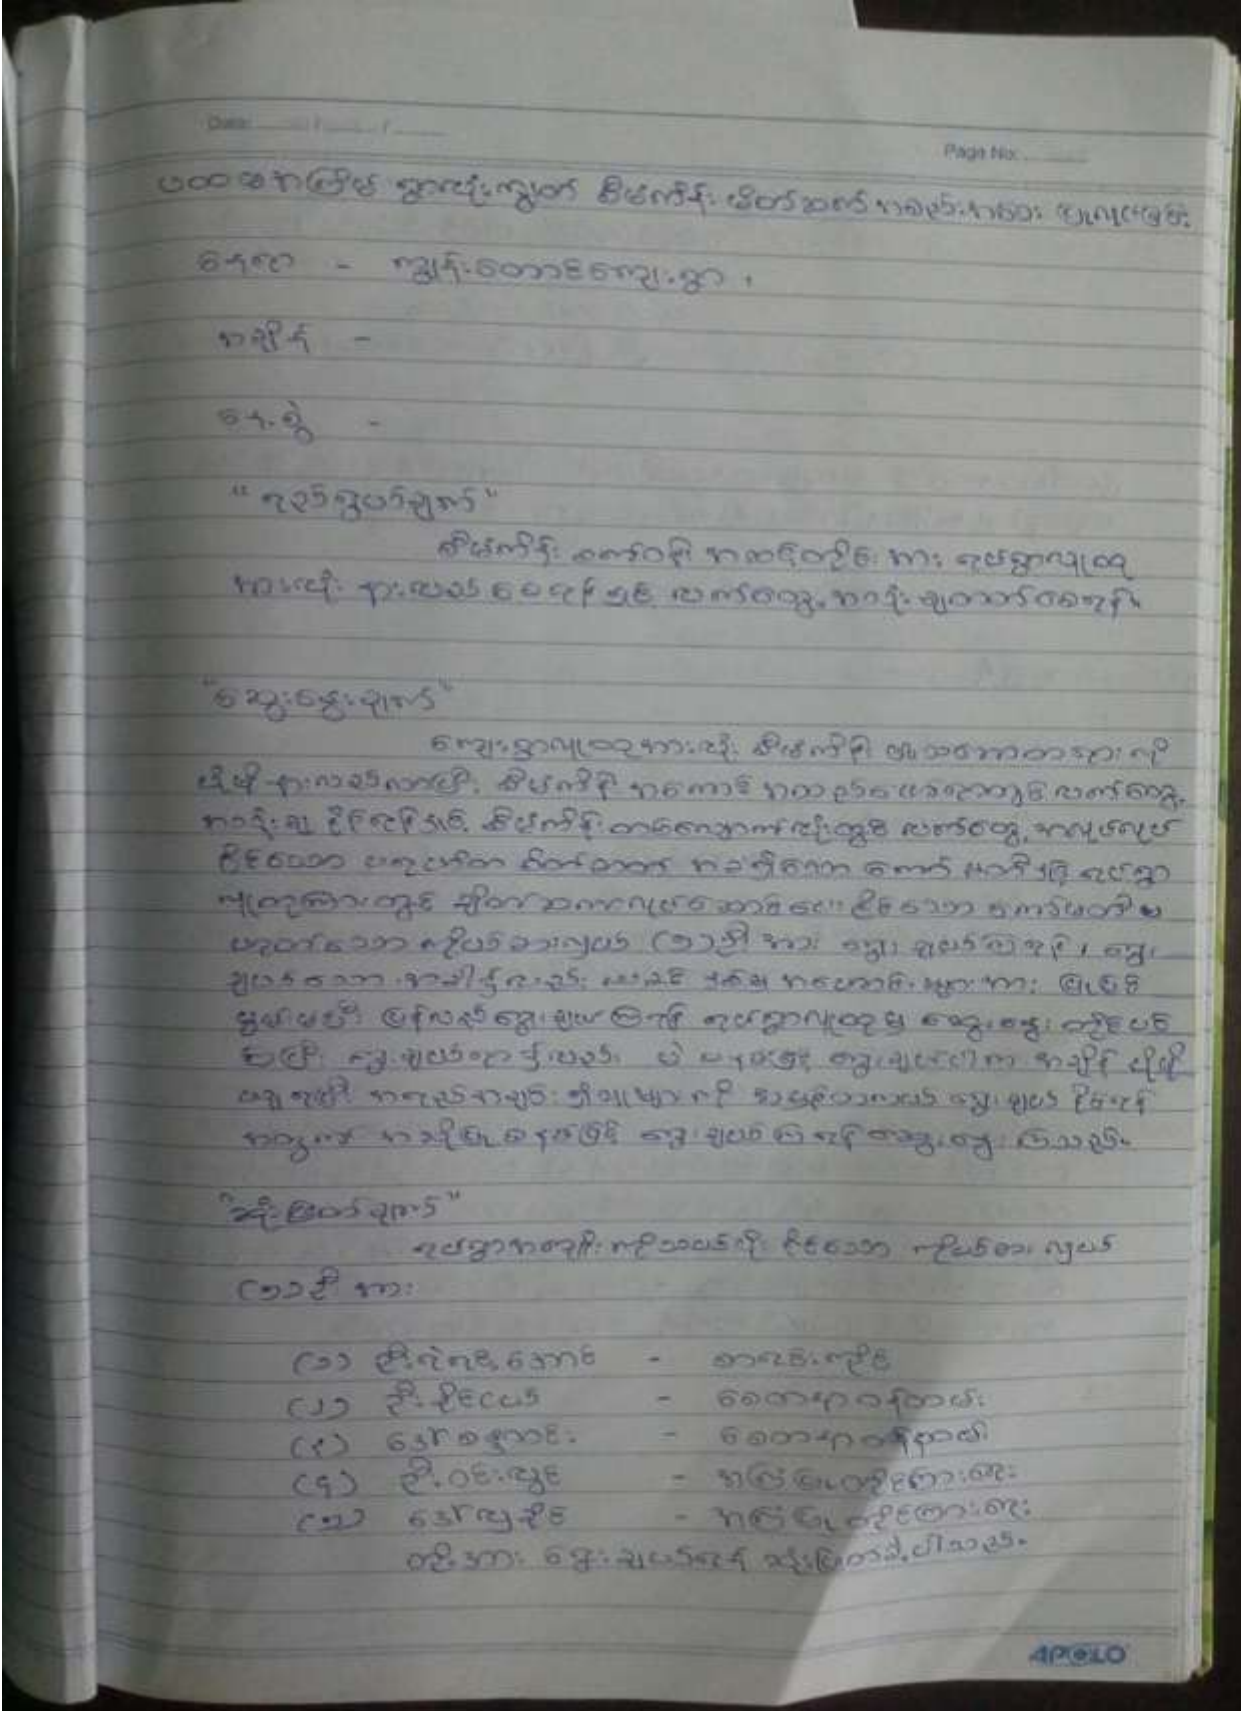 Date: / /
Page No:
ပထမအကြိမ် ရွာလုံးကျွတ် စီမံကိန်း မိတ်ဆက် အစည်းအဝေး ပြုလုပ်ခြင်း
နေရာ - ကျွန်းတောင်ကျေးရွာ ၊
အချိန် -
နေ့စွဲ -
"ရည်ရွယ်ချက်"
စီမံကိန်း စက်ဝန်း အဆင့်တိုင်း အား ရပ်ရွာလူထု
အားလုံး နားလည်စေရန်နှင့် လက်တွေ့ အသုံးချတတ်စေရန်။
"ဆွေးနွေးချက်"
ကျေးရွာလူထုအားလုံး စီမံကိန်း သဘောတရားကို
ပိုမို နားလည်လာပြီး စီမံကိန်း အကောင်အထည်ဖော်ရာတွင် လက်တွေ့
အသုံးချ နိုင်ရန်နှင့် စီမံကိန်း တစ်လျှောက်လုံးတွင် လက်တွေ့ အလုပ်လုပ်
နိုင်သော စိတ်ဓာတ် ကော်မတီ ရပ်ရွာ
လူထုကြားတွင် ချိတ်ဆက်လုပ်ဆောင်ပေးနိုင်သော ကော်မတီ
ဟုတ်သော ကိုယ်စားလှယ် (၅)ဦး အား ရွေးချယ်ကြရန်၊ ရွေး
ချယ်သော အခါ၌လည်း
ပြန်လည်ရွေးချယ်ကြရန် ရပ်ရွာလူထုမှ ဆွေးနွေး တိုင်ပင်
ကြပြီး ရွေးချယ်ရာ၌လည်း မဲ စနစ်ဖြင့် ရွေးချယ်ပါက အချိန် ပိုမို
အရည်အချင်း ရှိသူများကို ရွေးချယ် နိုင်ရန်
အတွက် အဆိုပြု စနစ်ဖြင့် ရွေးချယ်ကြရန် ဆွေးနွေးကြသည်။
"ဆုံးဖြတ်ချက်"
ရပ်ရွာအကျိုး ကိုသယ်ပိုး နိုင်သော ကိုယ်စားလှယ်
(၅)ဦး အား
(၁) ဦးရဲရင့်အောင် - စာရင်းကိုင်
(၂) ဦးနိုင်ငယ် - စေတနာ့ဝန်ထမ်း
(၃) ဒေါ်စန္ဒာဝင်း - စေတနာ့ဝန်ထမ်း
(၄) ဦးဝင်းလွင် - အကြံပြုတိုင်ကြားရေး
(၅) ဒေါ်လှနိုင် - အကြံပြုတိုင်ကြားရေး
တို့အား ရွေးချယ်ရန် ဆုံးဖြတ်ခဲ့ပါသည်။
APOLO